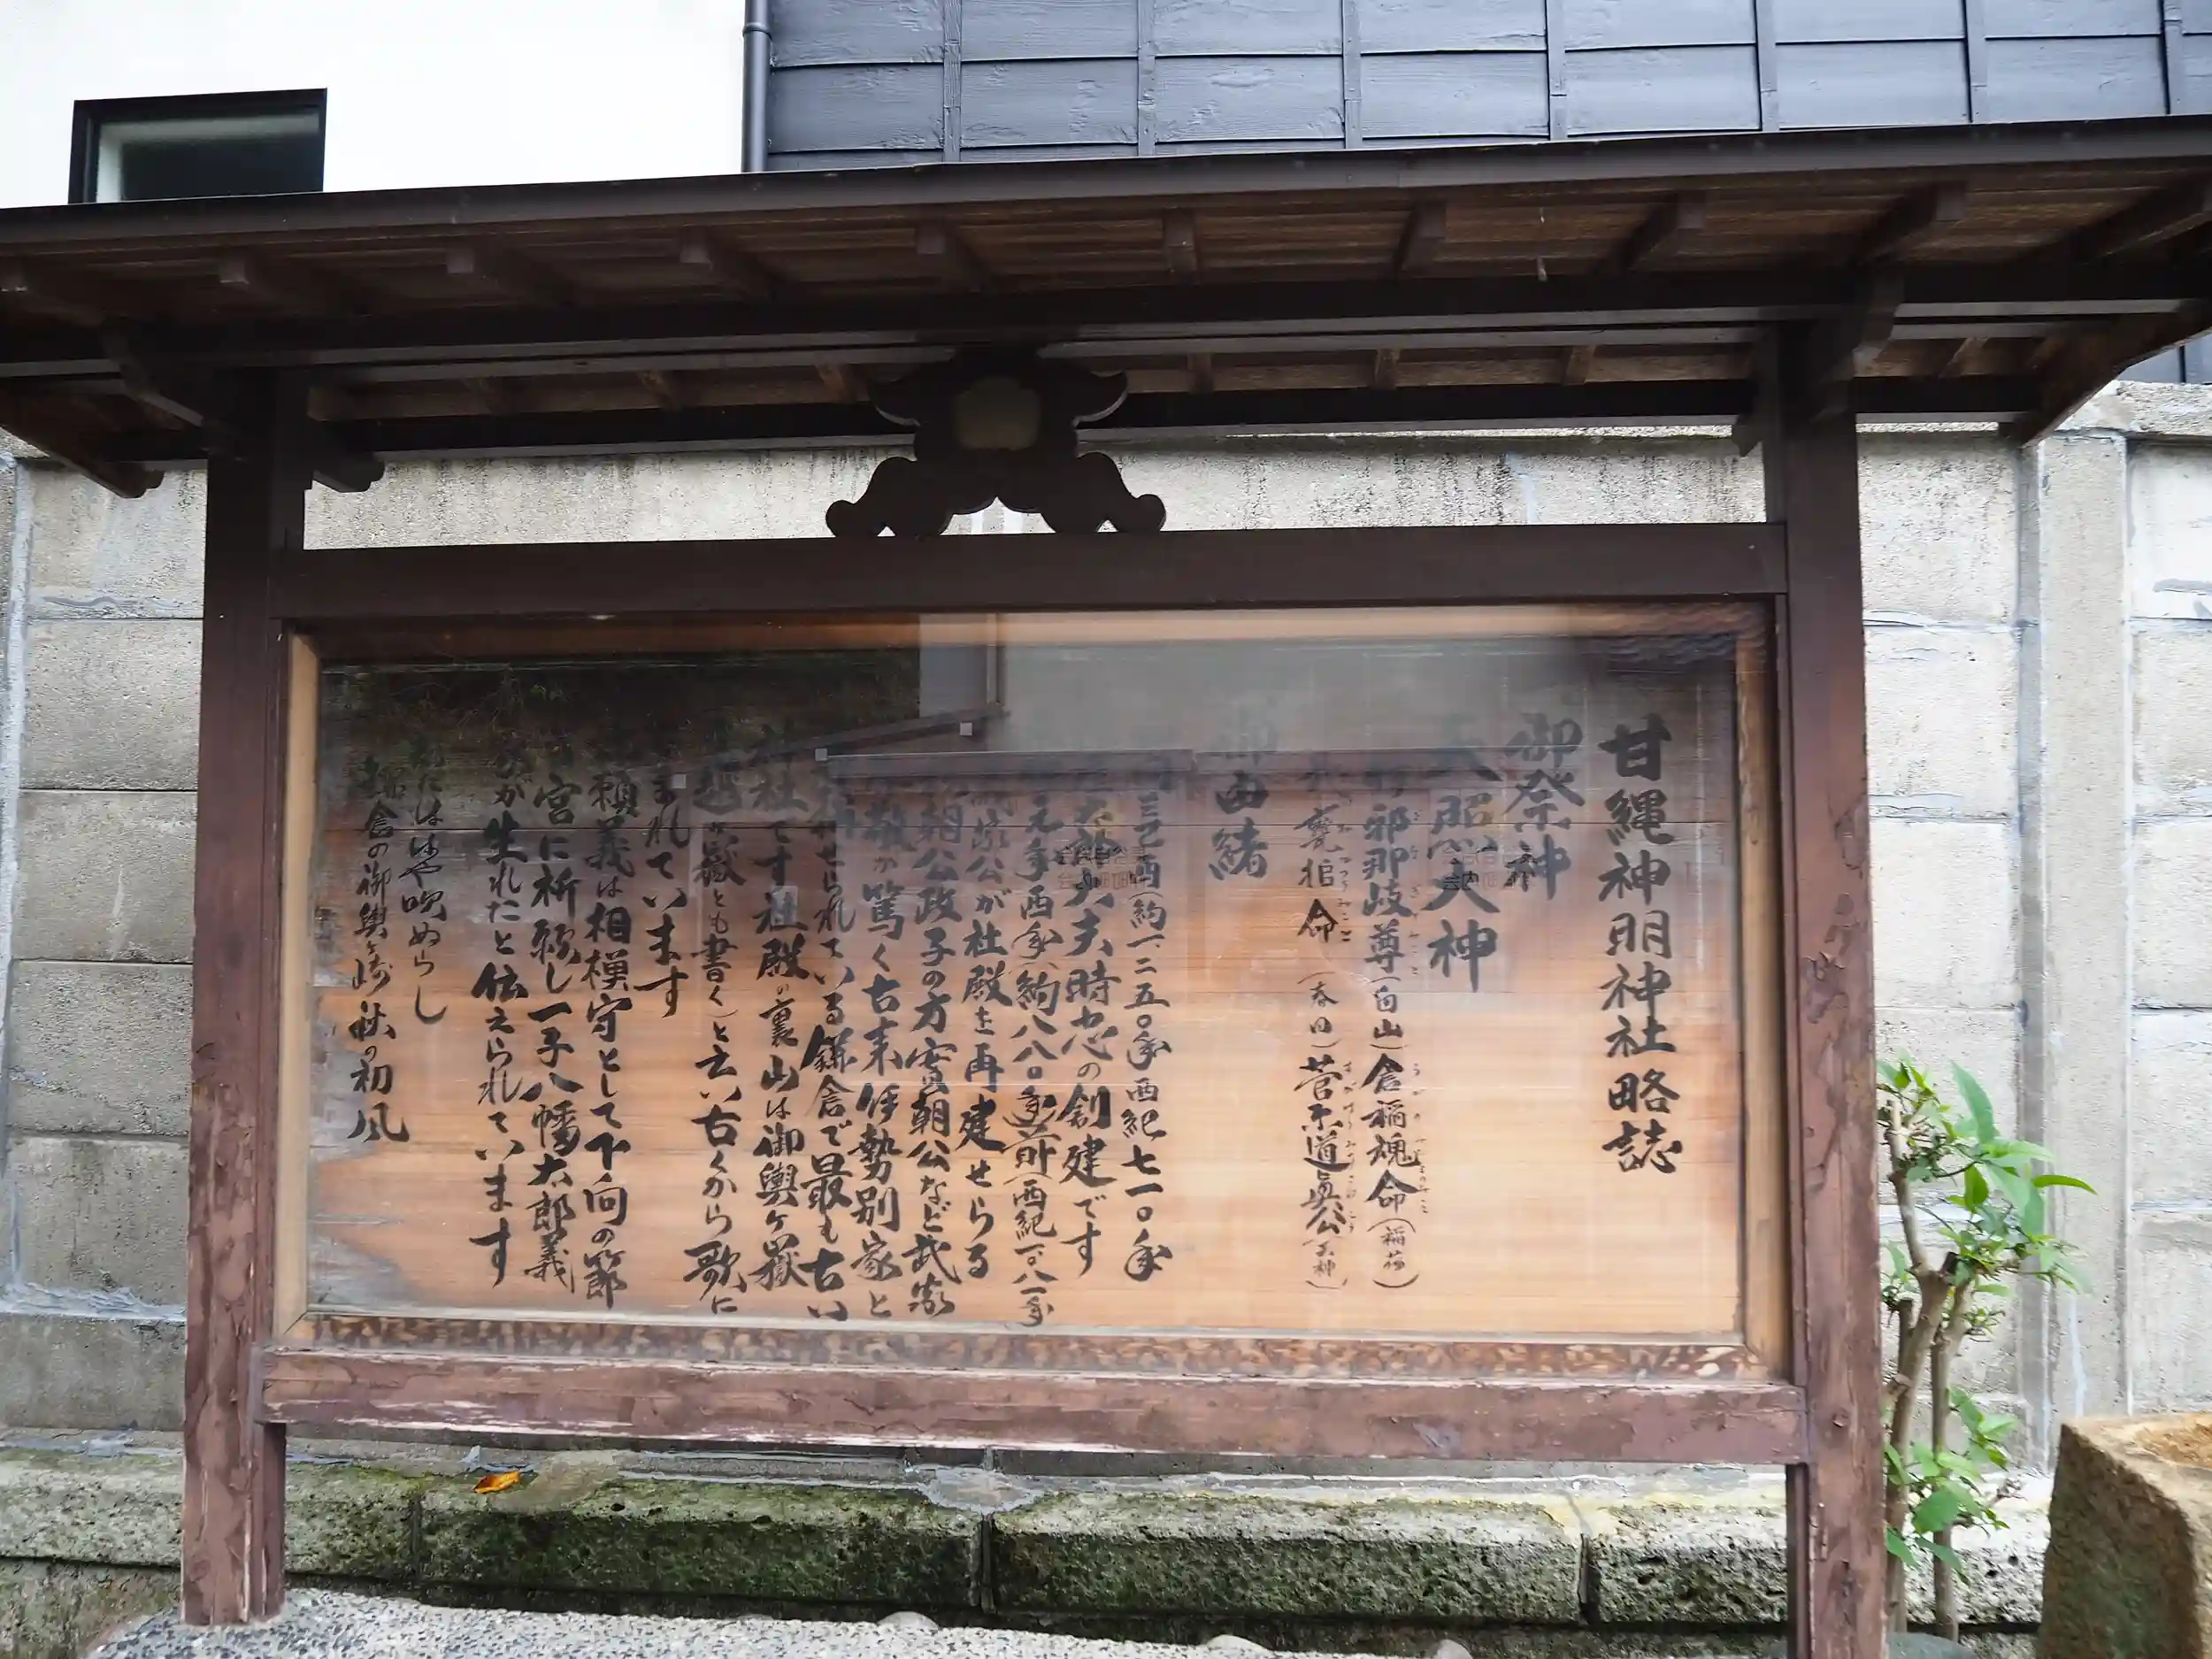 甘縄神明神社略誌
御祭神
天照大神
邪那岐尊(白山)倉稲魂命(稲荷)
甕槌命(春日)菅原道眞公(天神)
御由緒
己酉(約一二五〇年西紀七一〇年
太郎大夫時忠の創建です
元年酉年(約八八〇年前西紀一〇八一年
公が社殿を再建せらる
朝公政子の方實朝公など武家
敬が篤く古来伊勢別家と
せられている鎌倉で最も古い
神社です社殿の裏山は御輿ケ嶽
嶽とも書く)と云い古くから歌に
まれています
頼義は相模守として下向の節
宮に祈願し一子八幡太郎義
が生れたと伝えられています
はや吹ぬらし
鎌倉の御輿ケ崎秋の初風